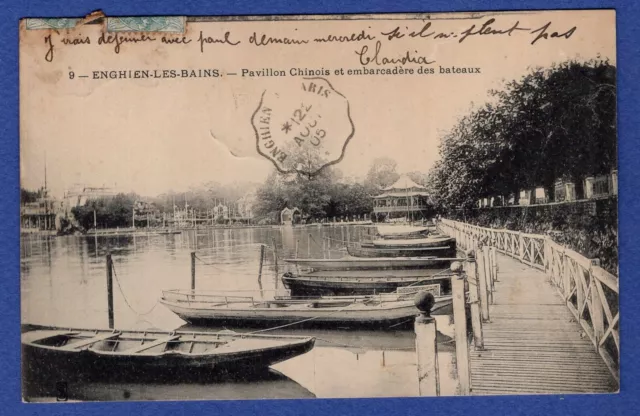 j'irais déjeuner avec paul demain mercredi s'il n. pleut pas
Claudia
9 - ENGHIEN-LES-BAINS. - Pavillon Chinois et embarcadère des bateaux
ENGHIEN PARIS
*122
AOUT
05